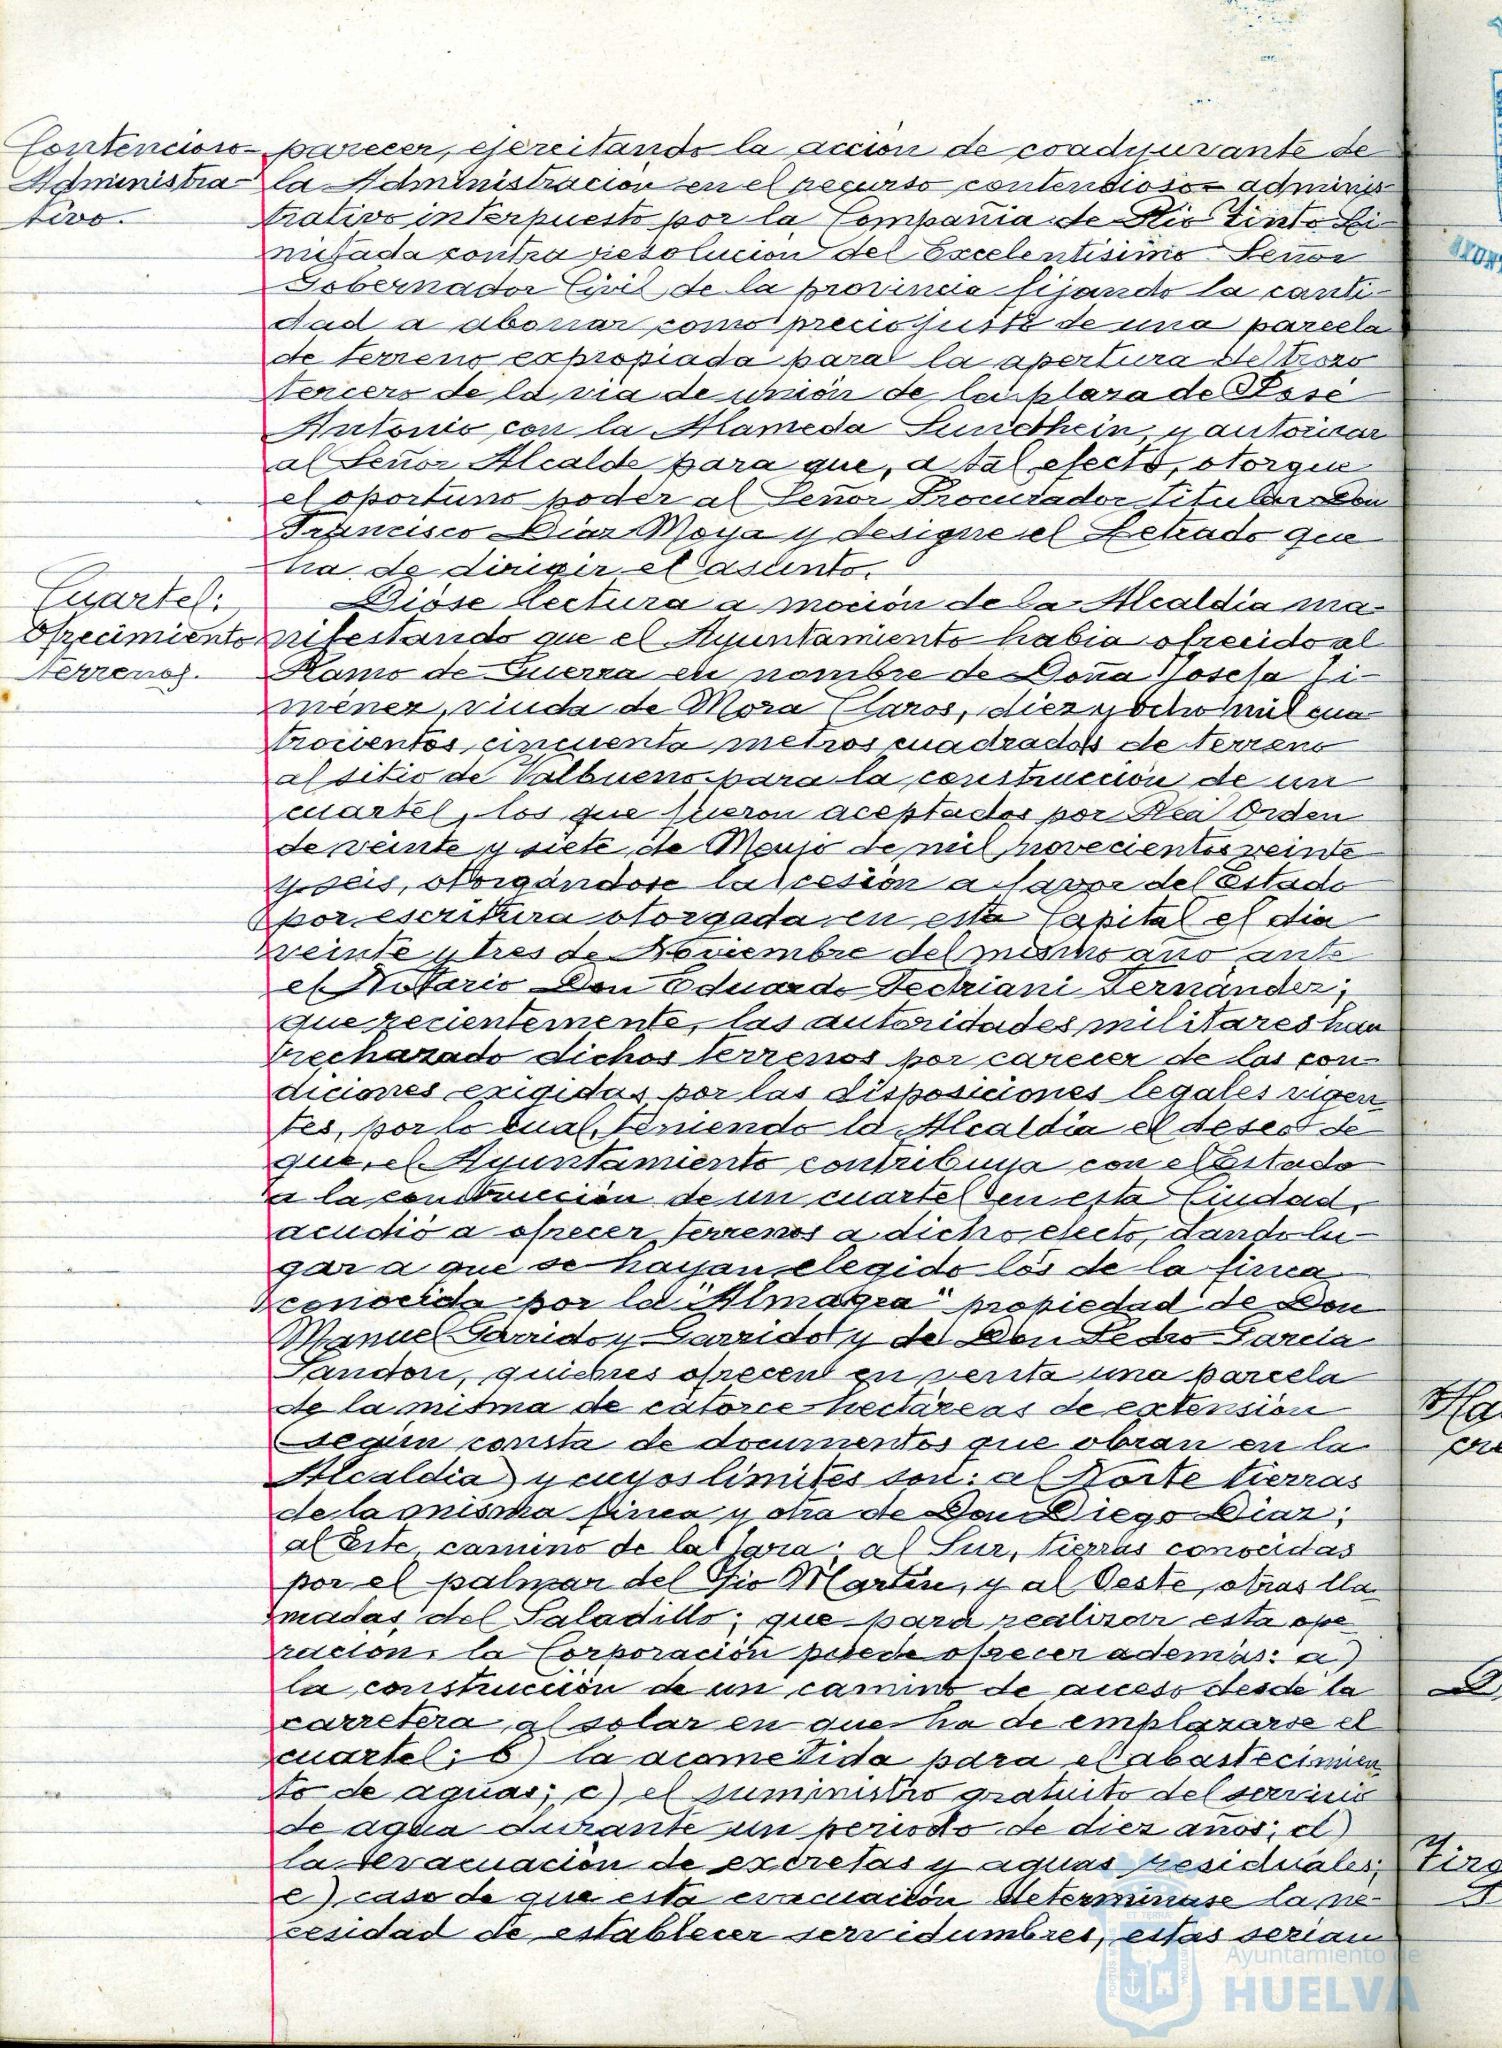 Contencioso-
Administra-
tivo.
parecer, ejercitando la acción de coadyuvante de
la Administración en el recurso contencioso-adminis-
trativo interpuesto por la Compañia de Rio Tinto Li-
mitada contra resolución del Excelentísimo Señor
Gobernador Civil de la provincia fijando la canti-
dad a abonar como precio justo de una parcela
de terreno expropiada para la apertura del trozo
tercero de la via de unión de la plaza de José
Antonio con la Alameda Sundhein, y autorizar
al Señor Alcalde para que, a tal efecto, otorgue
el oportuno poder al Señor Procurador titular Don
Francisco Diaz Moya y designe el Letrado que
ha de dirigir el asunto.
Cuartel:
Ofrecimiento
terrenos.
Dióse lectura a moción de la Alcaldía ma-
nifestando que el Ayuntamiento habia ofrecido al
Ramo de Guerra en nombre de Doña Josefa Ji-
menez, viuda de Mora Claros, diez y ocho mil cua
trocientos cincuenta metros cuadrados de terreno
al sitio de Valbueno para la construcción de un
cuartel, los que fueron aceptados por Real Orden
de veinte y siete de Mayo de mil novecientos veinte
y seis, otorgándose la cesión a favor del Estado
por escritura otorgada en esta Capital el dia
veinte y tres de Noviembre del mismo año ante
el Notario Don Eduardo Fedriani Fernández;
que recientemente, las autoridades militares han
rechazado dichos terrenos por carecer de las con-
diciones exigidas por las disposiciones legales vigen
tes, por lo cual, teniendo la Alcaldía el deseo de
que el Ayuntamiento contribuya con el Estado
a la construcción de un cuartel en esta Ciudad,
acudió a ofrecer terrenos a dicho efecto, dando lu-
gar a que se hayan elegido los de la finca
conocida por la "Almagra" propiedad de Don
Manuel Garrido y Garrido y de Don Pedro Garcia
quienes ofrecen en venta una parcela
de la misma de catorce hectáreas de extensión
(según consta de documentos que obran en la
Alcaldia) y cuyos limites son: al Norte tierras
de la misma finca y otra de Don Diego Diaz;
al Este, camino de la Jara; al Sur, tierras conocidas
por el palmar del Tio Martin, y al Oeste, otras lla
madas del Saladillo; que para realizar esta ope
racion, la Corporación puede ofrecer además: a)
la construcción de un camino de acceso desde la
carretera al solar en que ha de emplazarse el
cuartel; b) la acometida para el abastecimien
to de aguas; c) el suministro gratuito del servicio
de agua durante un periodo de diez años; d)
la evacuación de excretas y aguas residuales;
e) caso de que esta evacuación determinase la ne-
cesidad de establecer servidumbres, estas serian
Ayuntamiento de
HUELVA